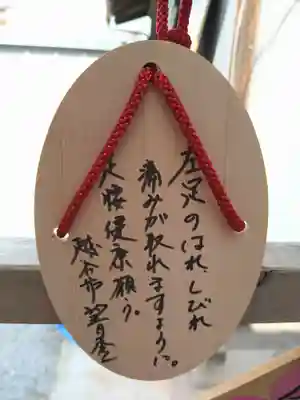 左足のはれ、しびれ
痛みが取れますように。
足腰健康願う。
越谷市 望月